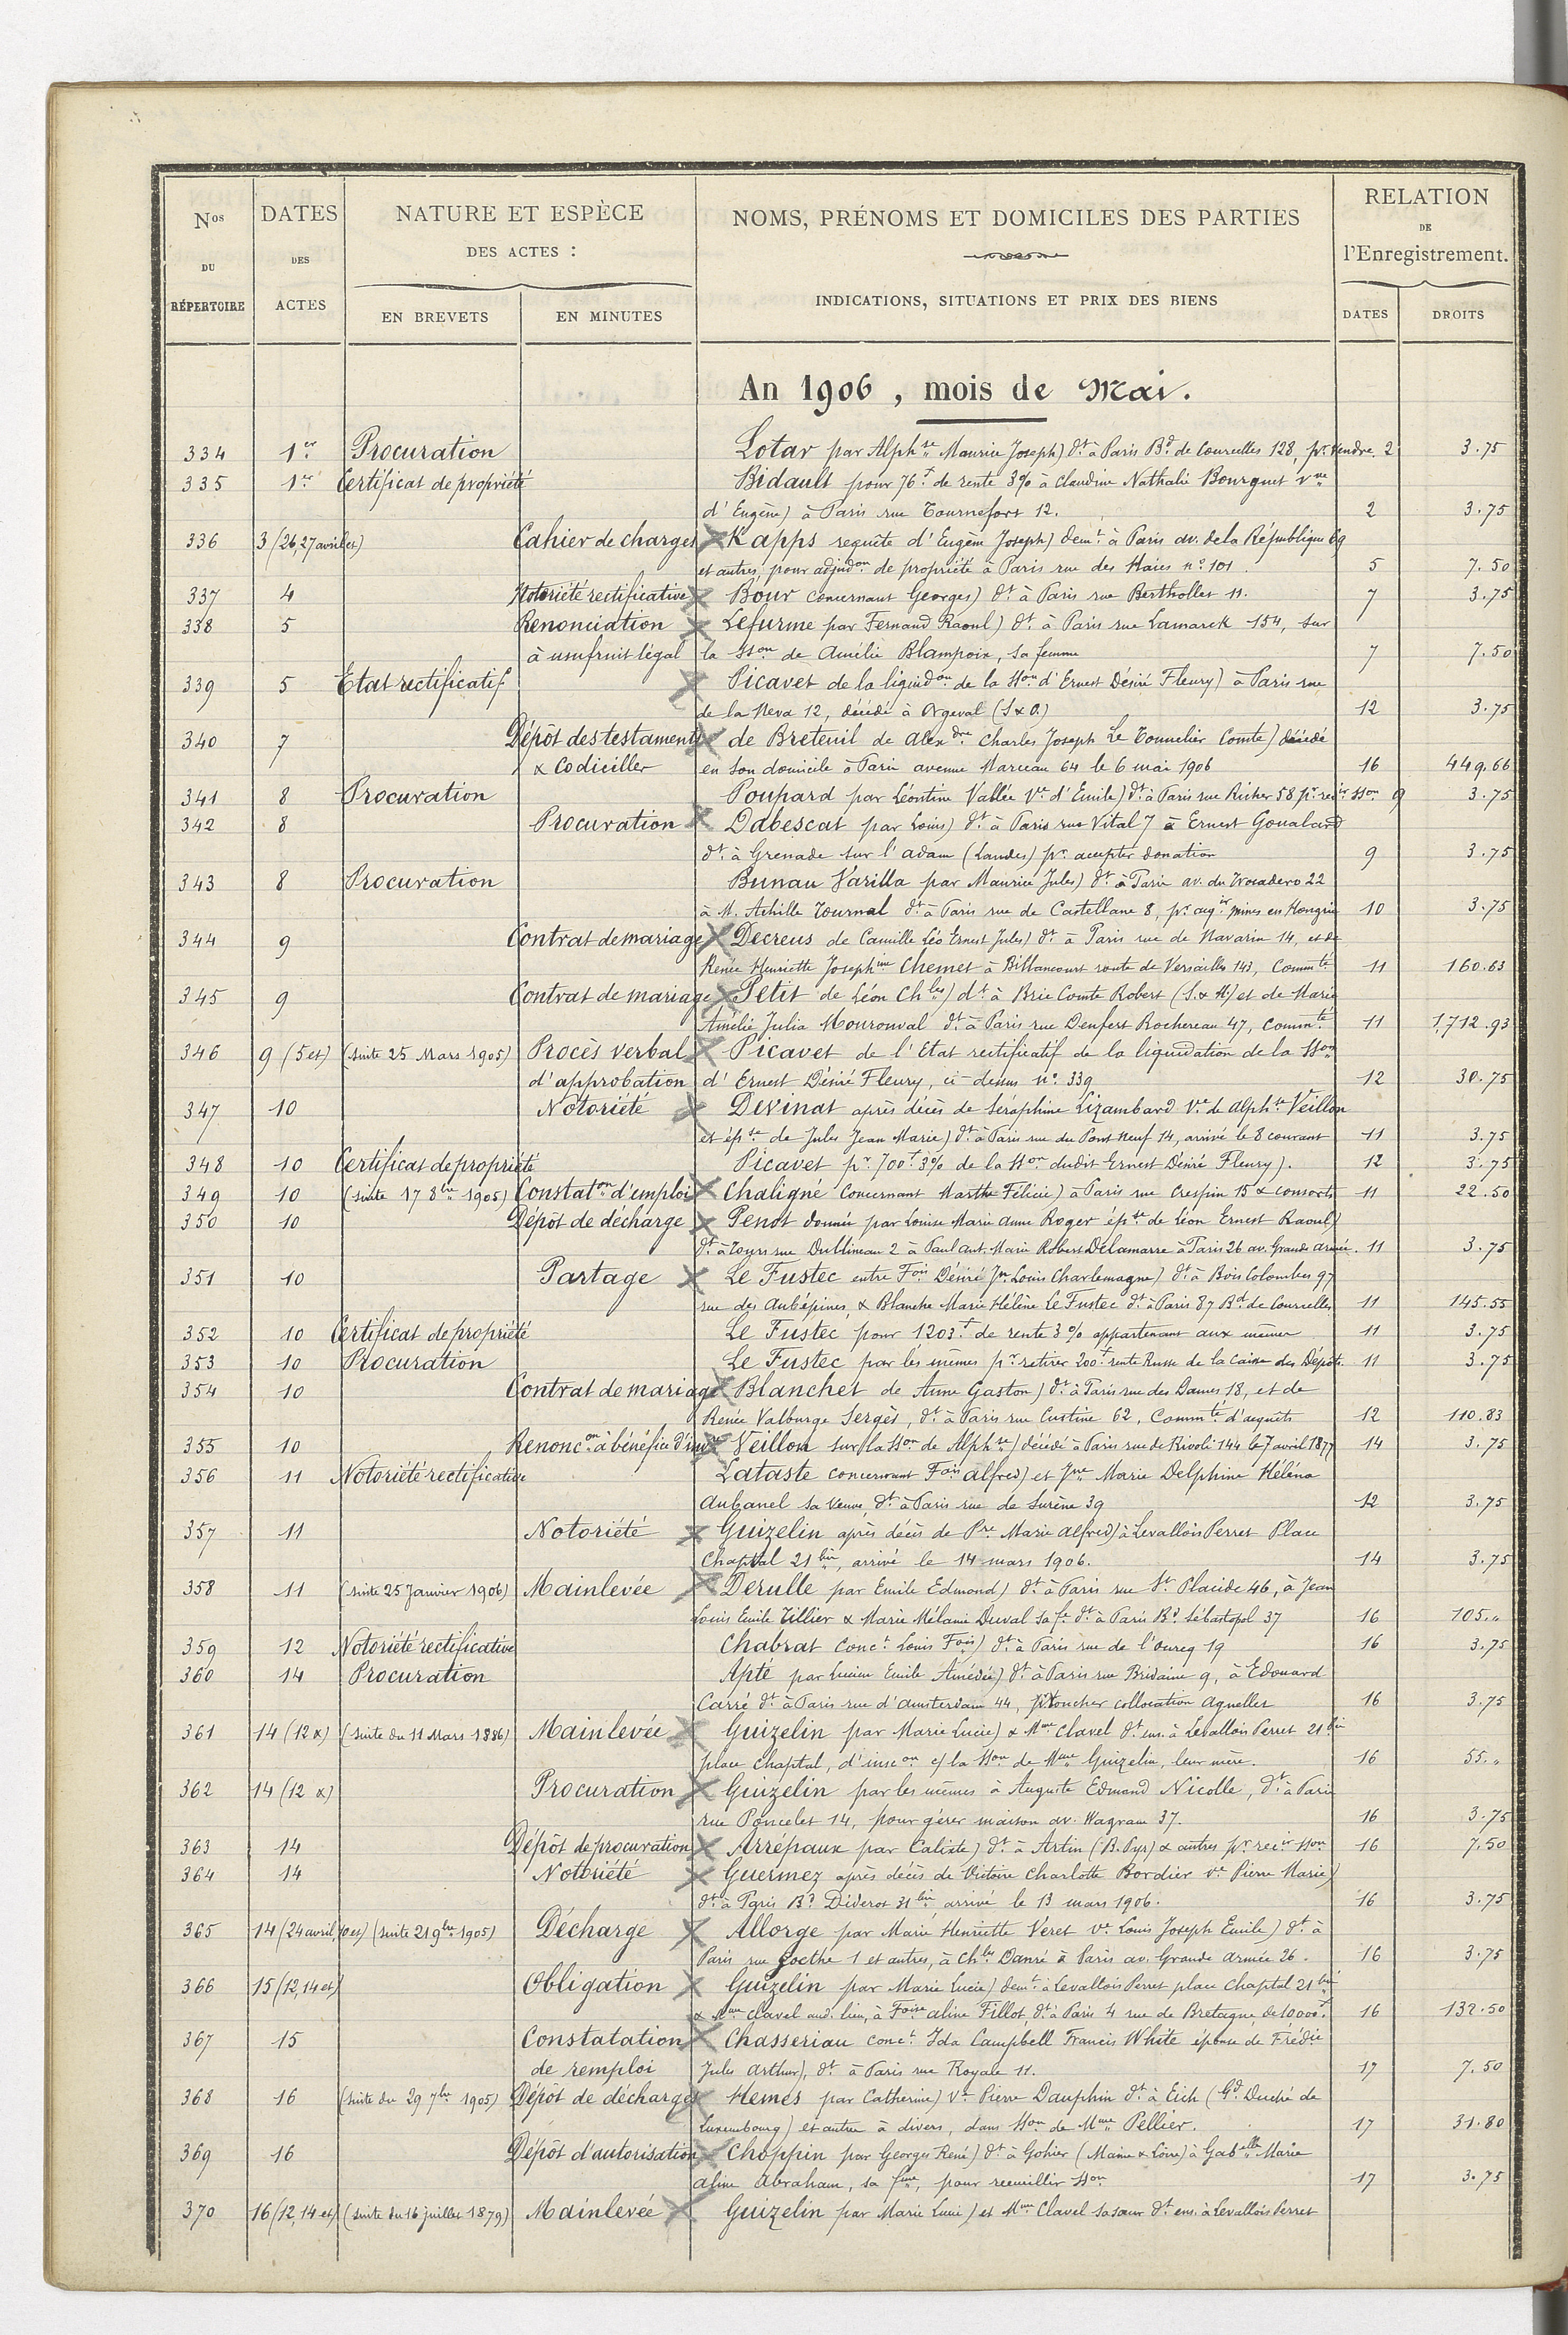 Nos DU RÉPERTOIRE
DATES DES ACTES
NATURE ET ESPÈCE DES ACTES :
EN BREVETS
EN MINUTES
NOMS, PRÉNOMS ET DOMICILES DES PARTIES
INDICATIONS, SITUATIONS ET PRIX DES BIENS
RELATION DE l'Enregistrement.
DATES
DROITS
An 1906, mois de Mai.
334 1er Procuration Lotar par Alphse Maurice Joseph) dt à Paris Bd de Courcelles 128, pr vendre. 2 3.75
335 1er Certificat de propriété Bidault pour 76f de rente 3% à Claudine Nathalie Bourguet vve
d'Eugène) à Paris rue Tournefort 12. 2 3.75
336 3 (26, 27 avril et) Cahier de charges Kapps requête d'Eugène Joseph) demt à Paris av. de la République 69
et autres, pour adjudon de propriété à Paris rue des Haies no 101. 5 7.50
337 4 Notoriété rectificative Bour concernant Georges) dt à Paris rue Berthollet 11. 7 3.75
338 5 Renonciation Lefurme par Fernand Raoul) dt à Paris rue Lamarck 154, sur
à usufruit légal la sson de Amélie Blampoix, sa femme 7 7.50
339 5 Etat rectificatif Picavet de la liquidon de la sson d'Ernest Désiré Fleury) à Paris rue
de la Neva 12, décédé à Orgeval (S & O.) 12 3.75
340 7 Dépôt des testaments de Breteuil de Alexdre Charles Joseph Le Tonnelier Comte) décédé
& Codiciller en son domicile à Paris avenue Marceau 64 le 6 mai 1906 16 449.66
341 8 Procuration Poupard par Léontine Vallée Ve d'Emile) dt à Paris rue Richer 58 pr recir sson 9 3.75
342 8 Procuration Dabescat par Louis) dt à Paris rue Vital 7 à Ernest Goualard
dt à Grenade sur l'adam (Landes) pr accepter donation 9 3.75
343 8 Procuration Bunau Varilla par Maurice Jules) dt à Paris av. du Trocadero 22
à M. Achille Tournal dt à Paris rue de Castellane 8, pr acqir mines en Hongrie 10 3.75
344 9 Contrat de mariage Decreus de Camille Léo Ernest Jules) dt à Paris rue de Navarin 14, et de
Renée Henriette Josephine Chemet à Billancourt route de Versailles 143, Commté 11 160.63
345 9 Contrat de mariage Petit de Léon Chles) dt à Brie Comte Robert (S. & M.) et de Marie
Amélie Julia Mouronval dt à Paris rue Denfert Rochereau 47, commté 11 1,712.93
346 9 (5 et) (suite 25 Mars 1905) Procès verbal Picavet de l'Etat rectificatif de la liquidation de la sson
d'approbation d'Ernest Désiré Fleury, ci-dessus no 339 12 30.75
347 10 Notoriété Devinat après décès de Séraphine Lizambard Ve de Alphse Veillon
et épse de Jules Jean Marie) dt à Paris rue du Pont Neuf 14, arrivé le 8 courant 11 3.75
348 10 Certificat de propriété Picavet pr 700f 3% de la sson dudit Ernest Désiré Fleury). 12 3.75
349 10 (suite 17 8bre 1905) Constaton d'emploi Chaligné concernant Marthe Félicie) à Paris rue Crespin 15 & consorts 11 22.50
350 10 Dépôt de décharge Penot donnée par Louise Marie Anne Roger épse de Léon Ernest Raoul)
dt à Tours rue Dublineau 2 à Paul Ant. Marie Robert Delamarre à Paris 26 av. Grande Armée. 11 3.75
351 10 Partage Le Fustec entre Fois Désiré Jn Louis Charlemagne) dt à Bois Colombes 97
rue des Aubépines, & Blanche Marie Hélène Le Fustec dt à Paris 87 Bd de Courcelles 11 145.55
352 10 Certificat de propriété Le Fustec pour 1203f de rente 3% appartenant aux mêmes 11 3.75
353 10 Procuration Le Fustec par les mêmes pr retirer 200f rente Russe de la Caisse des Dépôts. 11 3.75
354 10 Contrat de mariage Blanchet de Anne Gaston) dt à Paris rue des Dames 18, et de
Renée Valburge Sergès, dt à Paris rue Custine 62, Commté d'acquêts 12 110.83
355 10 Renoncon à bénéfice d'inv Veillon sur la sson de Alphse) décédé à Paris rue de Rivoli 144 le 7 avril 1877 14 3.75
356 11 Notoriété rectificative Lataste concernant Fois Alfred) et Jne Marie Delphine Héléna
Aubanel sa veuve, dt à Paris rue de Surène 39 12 3.75
357 11 Notoriété Guizelin après décès de Pre Marie Alfred) à Levallois Perret Place
Chaptal 21 bis, arrivé le 14 mars 1906. 14 3.75
358 11 (suite 25 Janvier 1906) Mainlevée Derulle par Emile Edmond) dt à Paris rue St Placide 46, à Jean
Louis Emile Tillier & Marie Mélanie Duval sa fe dt à Paris Bd Sébastopol 37 16 105.„
359 12 Notoriété rectificative Chabrat conct Louis Fois) dt à Paris rue de l'Ourcq 19 16 3.75
360 14 Procuration Apté par Lucien Emile Amédée) dt à Paris rue Bridaine 9, à Edouard
Carré dt à Paris rue d'Amsterdam 44, pr toucher collocation Agnellet 16 3.75
361 14 (12 &) (suite du 11 Mars 1886) Mainlevée Guizelin par Marie Lucie) & Mme Clavel dt ens. à Levallois Perret 21 bis
place Chaptal, d'inscon c/ la sson de Mme Guizelin, leur mère. 16 55.„
362 14 (12 &) Procuration Guizelin par les mêmes à Auguste Edmond Nicolle, dt à Paris
rue Poncelet 14, pour gérer maison av. Wagram 37. 16 3.75
363 14 Dépôt de procuration Arrépaux par Calixte) dt à Artin (B. Pyr) & autres pr recir sson 16 7.50
364 14 Notoriété Guermez après décès de Victoire Charlotte Bordier ve Pierre Marie)
dt à Paris Bd Diderot 31 bis arrivé le 13 mars 1906. 16 3.75
365 14 (24 avril, 10 et) (suite 21 9bre 1905) Décharge Allorge par Marie Henriette Veret ve Louis Joseph Emile) dt à
Paris rue Goethe 1 et autres, à Chles Danré à Paris av. Grande Armée 26. 16 3.75
366 15 (12, 14 et) Obligation Guizelin par Marie Lucie) demt à Levallois Perret place Chaptal 21 bis
& Mme Clavel aud. lieu, à Foise Aline Fillot, dt à Paris 4 rue de Bretagne, de 10000f. 16 132.50
367 15 Constatation Chasseriau conct Ida Campbell Francis White épouse de Frédic
de remploi Jules Arthur), dt à Paris rue Royale 11. 17 7.50
368 16 (suite du 29 7bre 1905) Dépôt de décharges Hemes par Catherine) Ve Pierre Dauphin dt à Eich (Gd Duché de
Luxembourg) et autre à divers, dans sson de Mme Pellier. 17 31.80
369 16 Dépôt d'autorisation Choppin par Georges René) dt à Gohier (Maine & Loire) à Gabelle Marie
Aline Abraham, sa fme, pour recueillir sson 17 3.75
370 16 (12, 14 et) (suite du 16 juillet 1879) Mainlevée Guizelin par Marie Lucie) et Mme Clavel sa sœur dt ens. à Levallois Perret